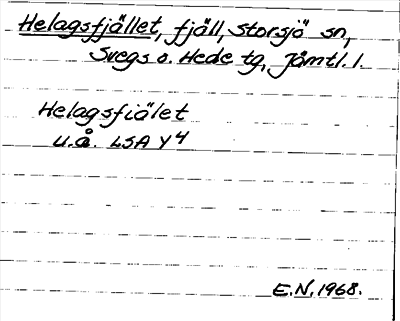 Helagsfjället, fjäll, Storsjö sn,
Svegs o. Hede tg, Jämtl. l.
Helagsfiälet
u.å. LSA Y4
E.N. 1968.